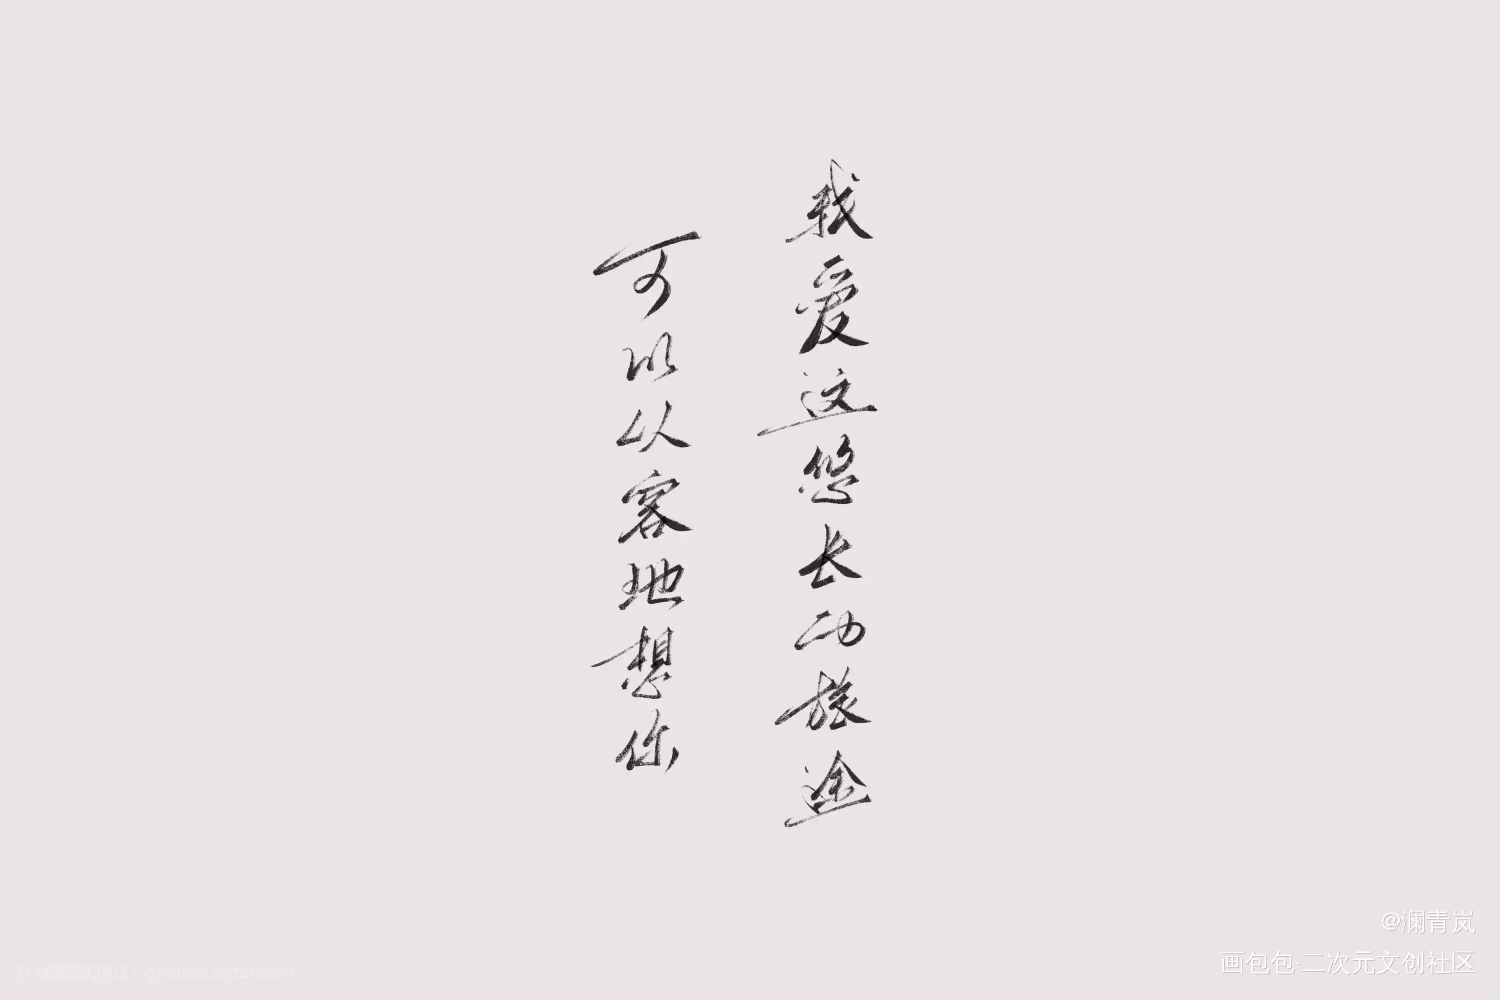 我爱这悠长的旅途
可以从容地想你
@澜青岚
画包包·二次元文创社区